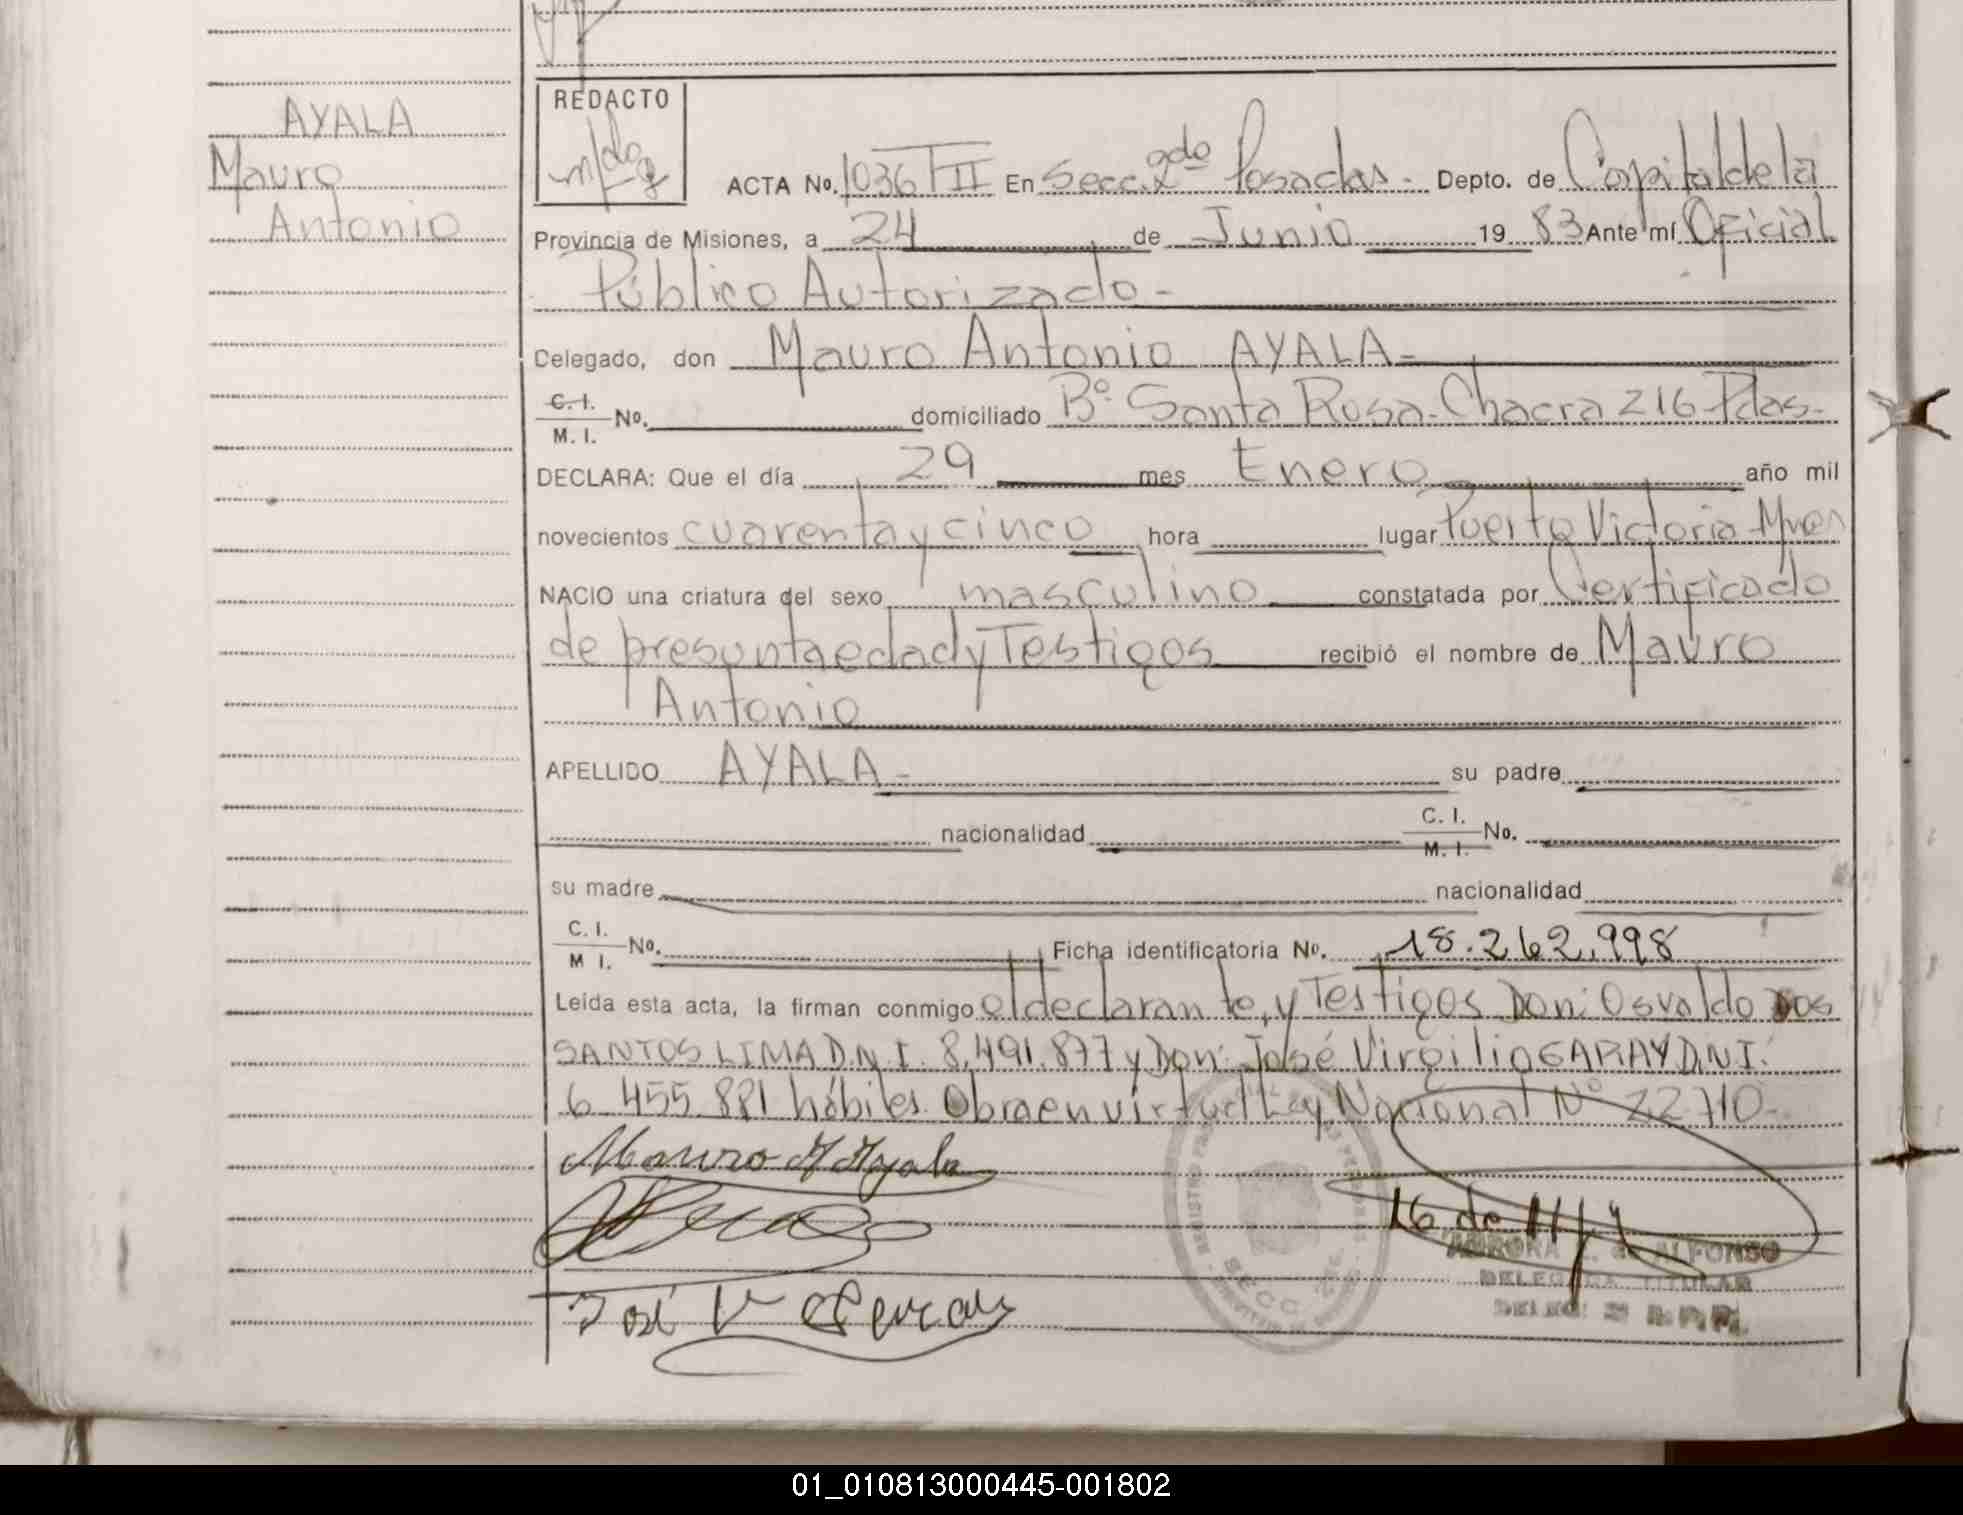 AYALA
Mauro
Antonio
REDACTO
ACTA No. 1036 TII En Secc. 2do Posadas.- Depto. de Capital de la
Provincia de Misiones, a 24 de Junio 1983 Ante mí Oficial
Público Autorizado -
Celegado, don Mauro Antonio AYALA-
C. I. / M. I. No. domiciliado Bº. Santa Rosa-Chacra 216 Pdas.-
DECLARA: Que el día 29 mes Enero año mil
novecientos cuarenta y cinco hora lugar Puerto Victoria Mnes
NACIO una criatura del sexo masculino constatada por Certificado
de presunta edad y Testigos recibió el nombre de Mauro
Antonio
APELLIDO AYALA - su padre
nacionalidad C. I. / M. I. No.
su madre nacionalidad
C. I. / M I. No. Ficha identificatoria No. 18.262.998
Leida esta acta, la firman conmigo el declarante, y Testigos Don: Osvaldo DOS
SANTOS LIMA D.N.I. 8.491.877 y Don: José Virgilio GARAY D.N.I.
6 455 881 hábiles. Obra en virtud Ley Nacional Nº 22710-
Mauro A Ayala
José V
SECC. 2DA.
AURORA de ALFONSO
DELEGADA TITULAR
01_010813000445-001802